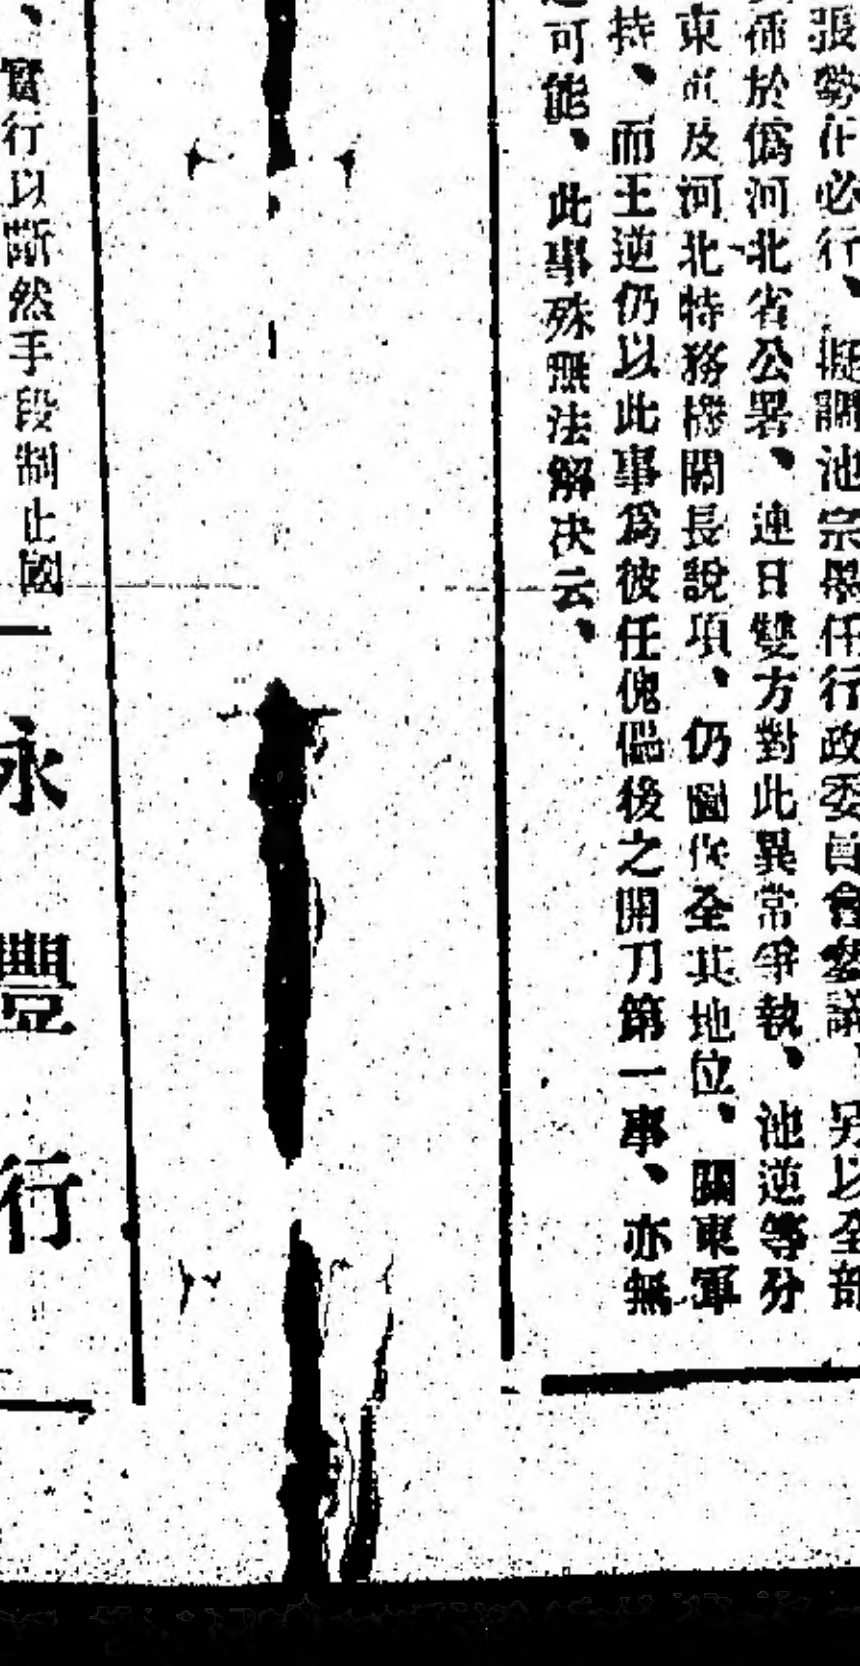 張勢在必行、擬調池宗墨任行政委員會參議、另以全部
佈於僞河北省公署、連日雙方對此異常爭執、池逆等分
東京及河北特務機關長說項、仍圖保全其地位、關東軍
持、而王逆仍以此事爲彼任傀儡後之開刀第一事、亦無
可能、此事殊無法解决云、
、實行以斷然手段制止國
永豐行